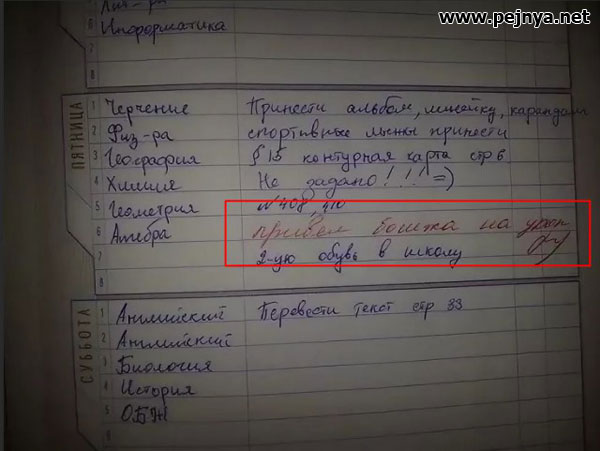 www.pejnya.net
6 Информатика
7
8
ПЯТНИЦА
1 Черчение Принести альбом, линейку, карандаш
2 Физ-ра спортивные принести
3 География § 15 контурная карта стр 6
4 Химия Не задано!!! =)
5 Геометрия №408, 410
6 Алгебра привёл бомжа на урок
7 2-ую обувь в школу
8
СУББОТА
1 Английский Перевести текст стр 33
2 Английский
3 Биология
4 История
5 ОБЖ
6